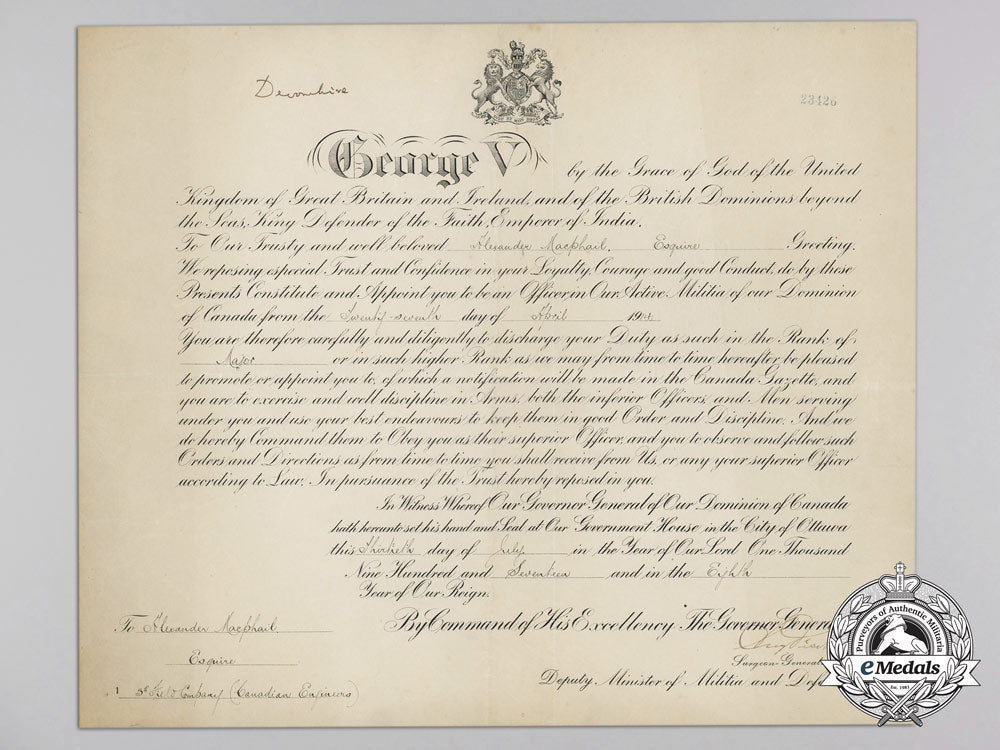 Devonshire
23426
George V by the Grace of God of the United
Kingdom of Great Britain and Ireland, and of the British Dominions beyond
the Seas, King Defender of the Faith, Emperor of India.
To Our Trusty and well beloved Alexander Macphail, Esquire Greeting.
We reposing especial Trust and Confidence in your Loyalty, Courage and good Conduct, do by these
Presents Constitute and Appoint you to be an Officer in Our Active Militia of our Dominion
of Canada from the Twenty-seventh day of April
You are therefore carefully and diligently to discharge your Duty as such in the Rank of
Major or in such higher Rank as we may from time to time hereafter be pleased
to promote or appoint you to, of which a notification will be made in the Canada Gazette, and
you are to exercise and well discipline in Arms, both the inferior Officers, and Men serving
under you and use your best endeavours to keep them in good Order and Discipline. And we
do hereby Command them to Obey you as their superior Officer, and you to observe and follow such
Orders and Directions as from time to time you shall receive from Us, or any your superior Officer
according to Law. In pursuance of the Trust hereby reposed in you.
In Witness Whereof Our Governor General of Our Dominion of Canada
hath hereunto set his hand and Seal at Our Government House in the City of Ottawa
this Thirtieth day of July in the Year of Our Lord One Thousand
Nine Hundred and Seventeen and in the Eighth
Year of Our Reign.
By Command of His Excellency The Governor General
Surgeon General
Deputy Minister of Militia and
To Alexander Macphail,
Esquire
Field Company (Canadian Engineers)
Purveyors of Authentic Militaria
eMedals
Est. 1967